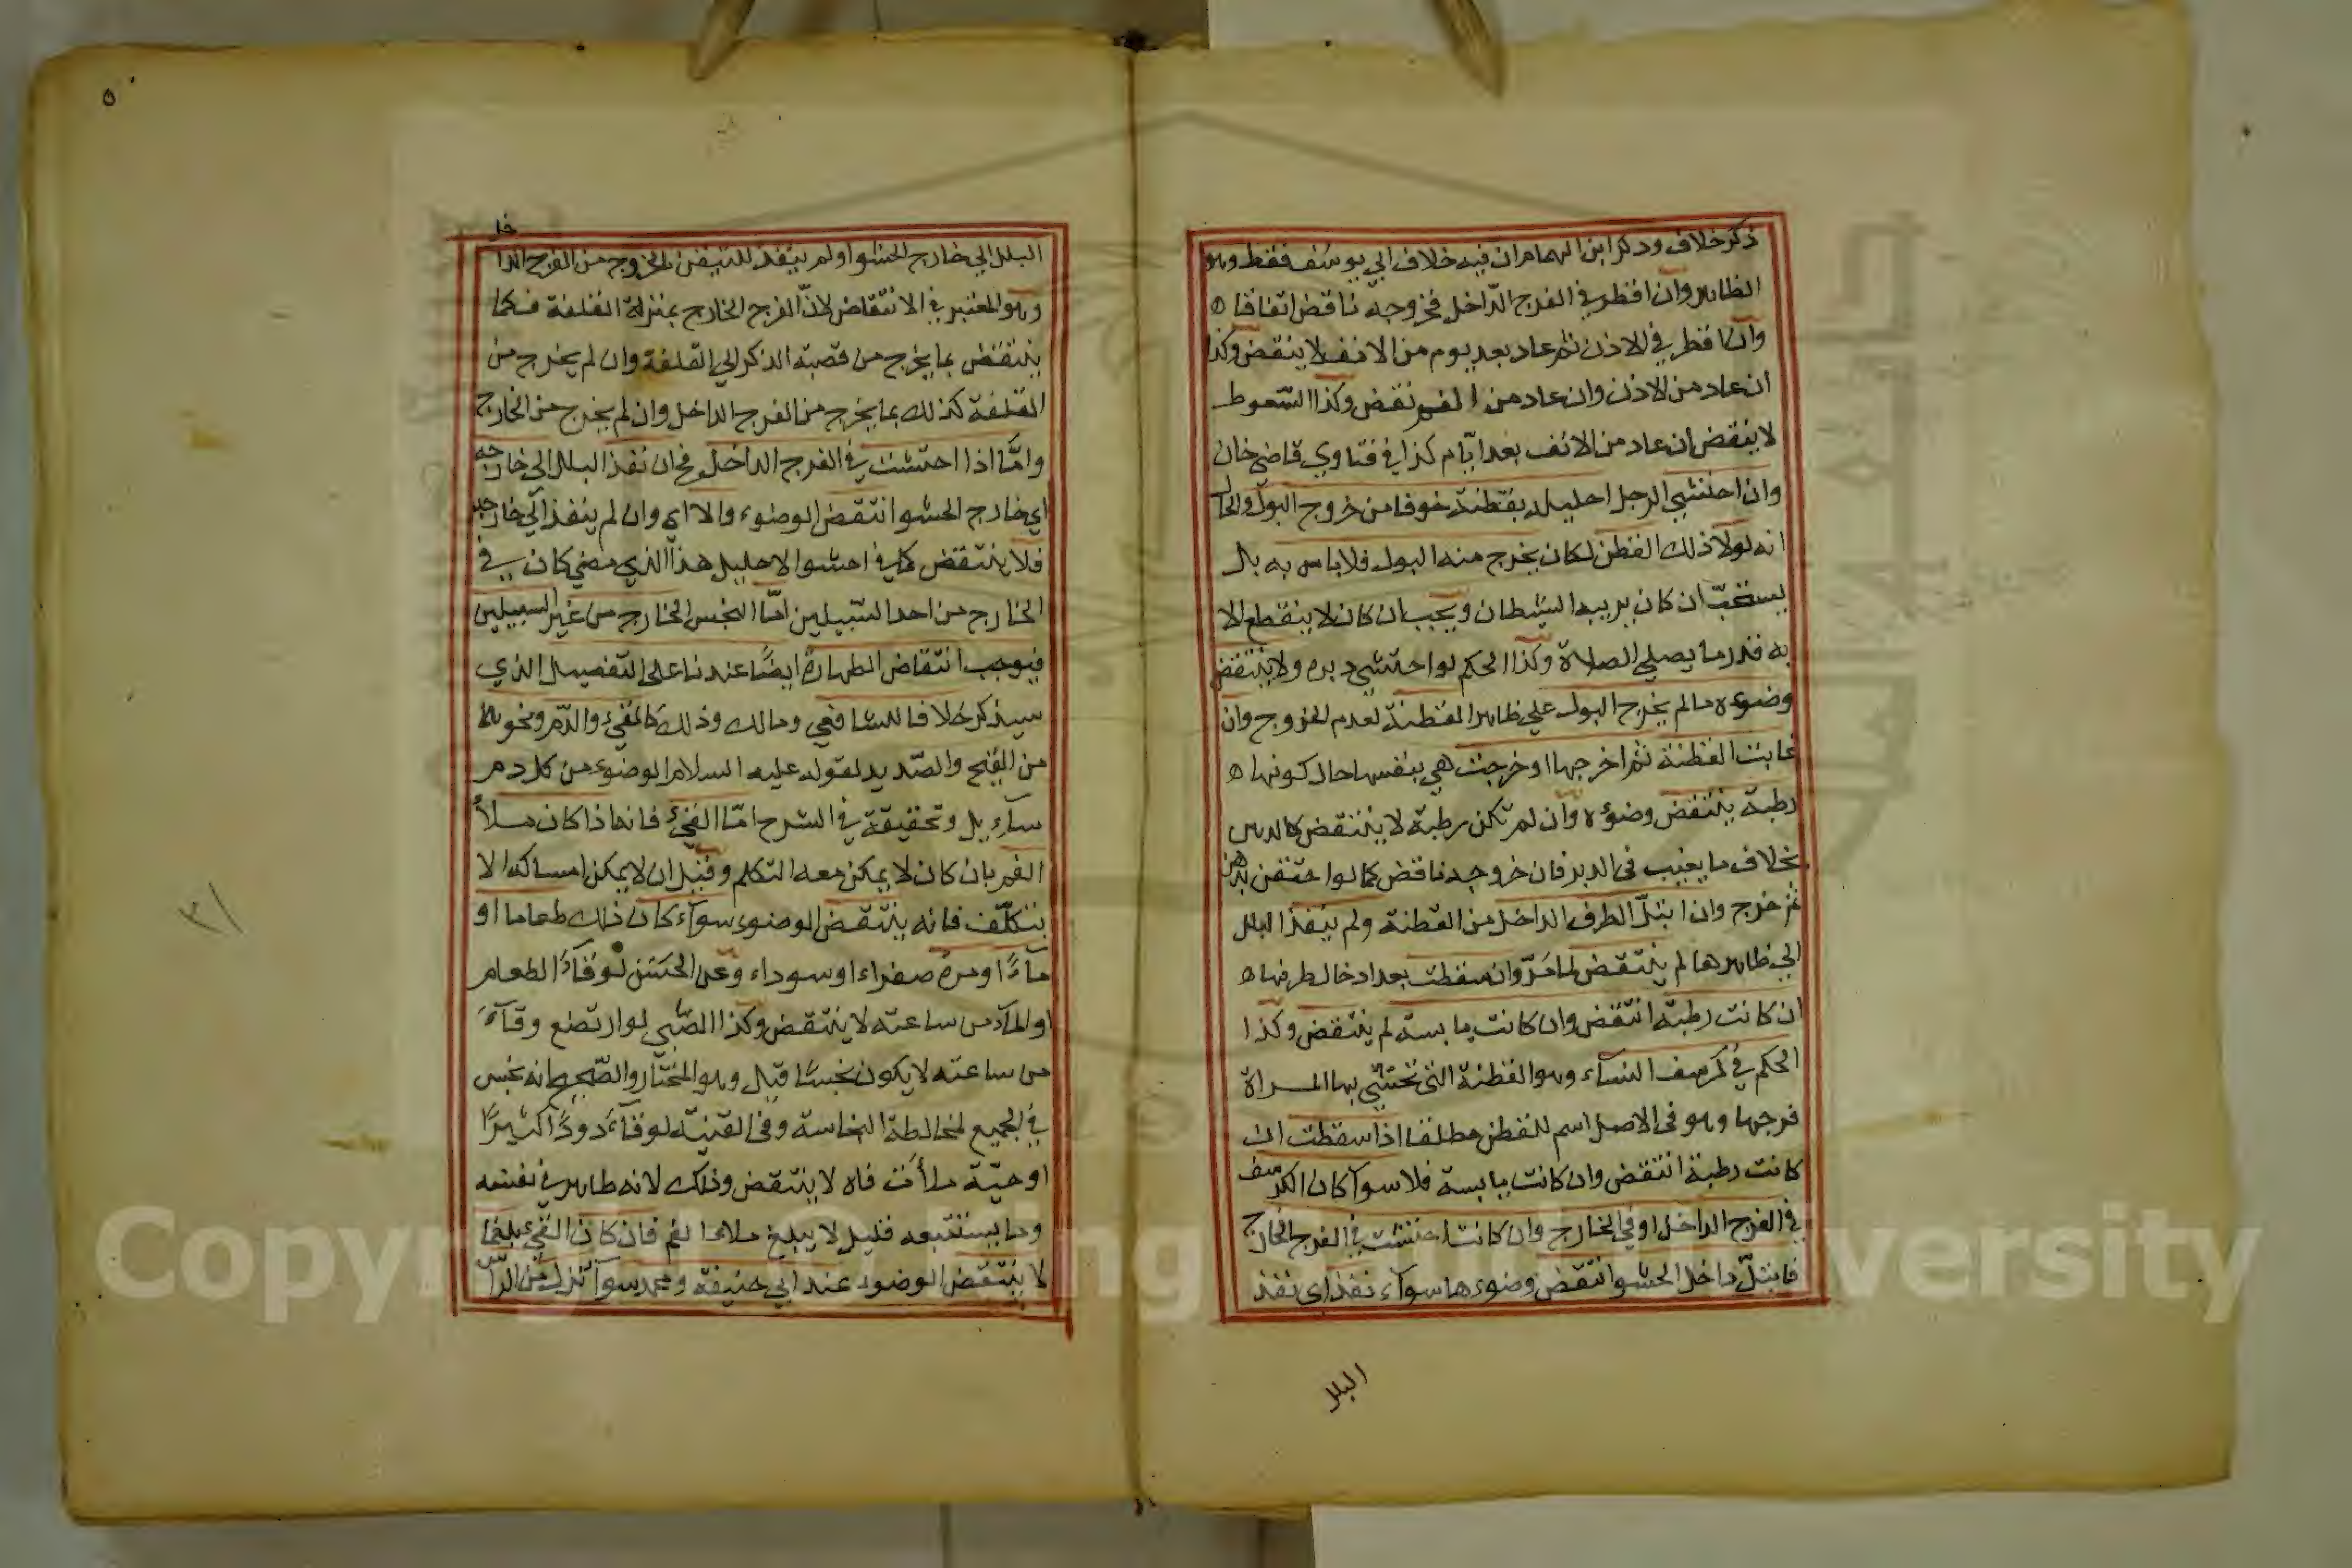 ذكر خلاف وذكر ابن الهمام ان فيه خلاف ابي يوسف فقط وهو
الظاهر وان اقطر في الفرج الداخل فخروجه ناقض اتفاقا
وان اقطر في الاذن ثم عاد بعد يوم من الانف لا ينقض وكذا
ان عاد من الاذن وان عاد من الفم نقض وكذا السّعوط
لا ينقض ان عاد من الانف بعد ايّام كذا في فتاوي قاضي خان
وان احتشي الرجل احليله بقطنة خوفا من خروج البول والحال
انه لولا ذلك القطن لكان يخرج منه البول فلا باس به بل
يستحبّ ان كان يريبه الشيطان ويجب ان كان لا ينقطع الا
به قدر ما يصلي الصلاة وكذا الحكم لو احتشي دبره ولا ينتقض
وضوءه ما لم يخرج البول علي ظاهر القطنة لعدم الخروج وان
غابت القطنة ثم اخرجها او خرجت هي بنفسها حال كونها
رطبة ينتقض وضوءه وان لم تكن رطبة لا ينتقض كالدبر
بخلاف ما يغيب في الدبر فان خروجه ناقض كما لو احتقن بدهن
ثم خرج وان ابتلّ الطرف الداخل من القطنة ولم ينفذ البلل
الي ظاهرها لم ينتقض لما مرّ وان سقطت بعد ادخال طرفها
ان كانت رطبة انتقض وان كانت يابسة لم ينتقض وكذا
الحكم في كرسف النساء وهو القطنة التي تحتشي بها المراة
فرجها وهو في الاصل اسم للقطن مطلقا اذا سقطت ان
كانت رطبة انتقض وان كانت يابسة فلا سوآ كان الكرسف
في الفرج الداخل او في الخارج وان كانت احتشت في الفرج الخارج
فابتلّ داخل الحشو انتقض وضوءها سوآء نفذ اى نفذ
البلل
٥
البلل الي خارج الحشو او لم ينفذ للتيقن بالخروج من الفرج الداخل
وهو المعتبر في الانتقاض لانّ الفرج الخارج بمنزلة القلفة فكما
ينتقض بما يخرج من قصبة الذكر الي القلفة وان لم يخرج من
القلفة كذلك بما يخرج من الفرج الداخل وان لم يخرج من الخارج
وامّا اذا احتشت في الفرج الداخل فح ان نفذ البلل الى خارجه
اي خارج الحشو انتقض الوضوء والا اي وان لم ينفذ الي خارجه
فلا ينتقض كما في احشو الاحليل هذا الذي مضي كان في
الخارج من احد السّبيلين امّا النجس الخارج من غير السبيلين
فيوجب انتقاض الطهارة ايضًا عندنا على التفصيل الذي
سيذكر خلافا للشافعي ومالك وذلك كالقيء والدّم ونحوهما
من القيح والصّديد لقوله عليه السلام الوضوء من كل دم
سآيل وتحقيقة في الشرح امّا القيء فانه اذا كان ملأ
الفم بان كان لا يمكن معه التكلم وقيل ان لا يمكن امساكه الا
بتكلّف فانه ينتقض الوضوء سوآء كان ذلك طعاما او
مآءً او مرة صفراء او سوداء وعن الحسن لو قآءً الطعام
او المآء من ساعته لا ينتقض وكذا الصّبي لو ارتضع وقآءَ
من ساعته لا يكون نجسًا قيل وهو المختار والصّحيح انه نجس
في الجميع لمخالطة النجاسة وفي القنية لو قآءَ دودًا كثيرًا
او حيّة ملأت فاه لا ينتقض وذلك لانه طاهر في نفسه
وما يستتبعه قليل لا يبلغ ملأ الفم فان كان القيء بلغما
لا ينتقض الوضوء عند ابي حنيفة ومحمد سوآ نزل من الراس